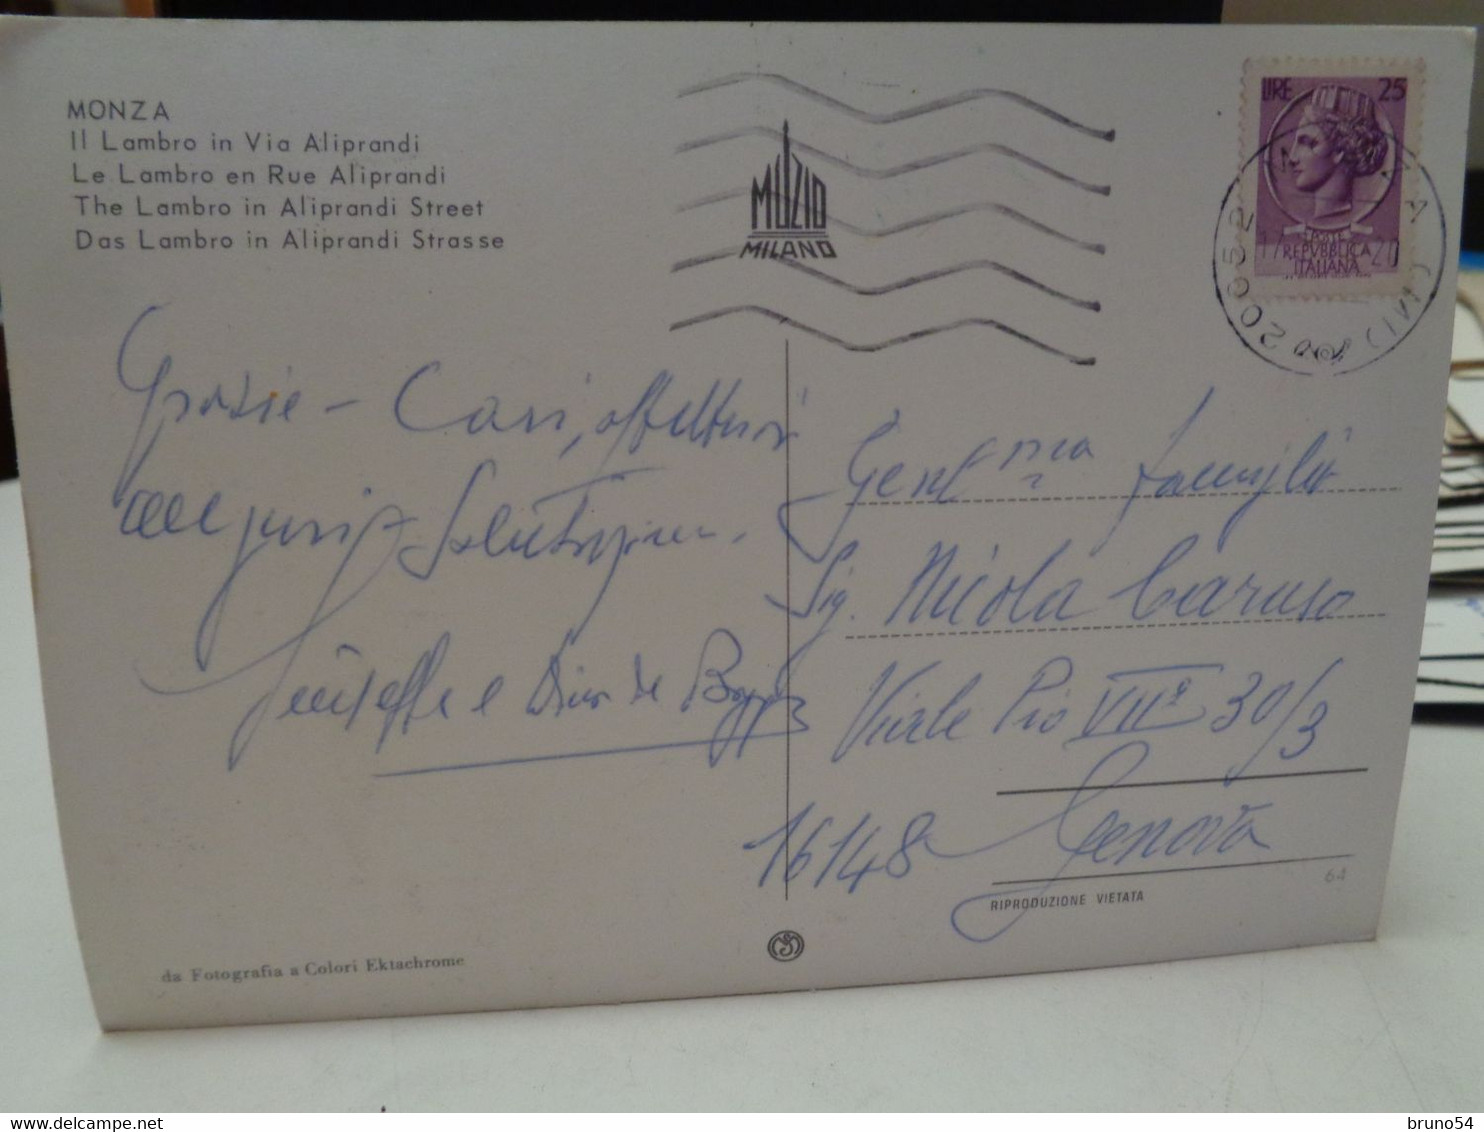 MONZA
Il Lambro in Via Aliprandi
Le Lambro en Rue Aliprandi
The Lambro in Aliprandi Street
Das Lambro in Aliprandi Strasse
MUZIO
MILANO
LIRE 25
POSTE
REPVBBLICA
ITALIANA
20052 MONZA (MI)
Grazie - Cari, affettuosi
auguri
Giuseppe e
Gent.ma famiglia
Sig. Nicola Caruso
Viale Pio VII° 30/3
16148 Genova
RIPRODUZIONE VIETATA
64
da Fotografia a Colori Ektachrome
bruno54